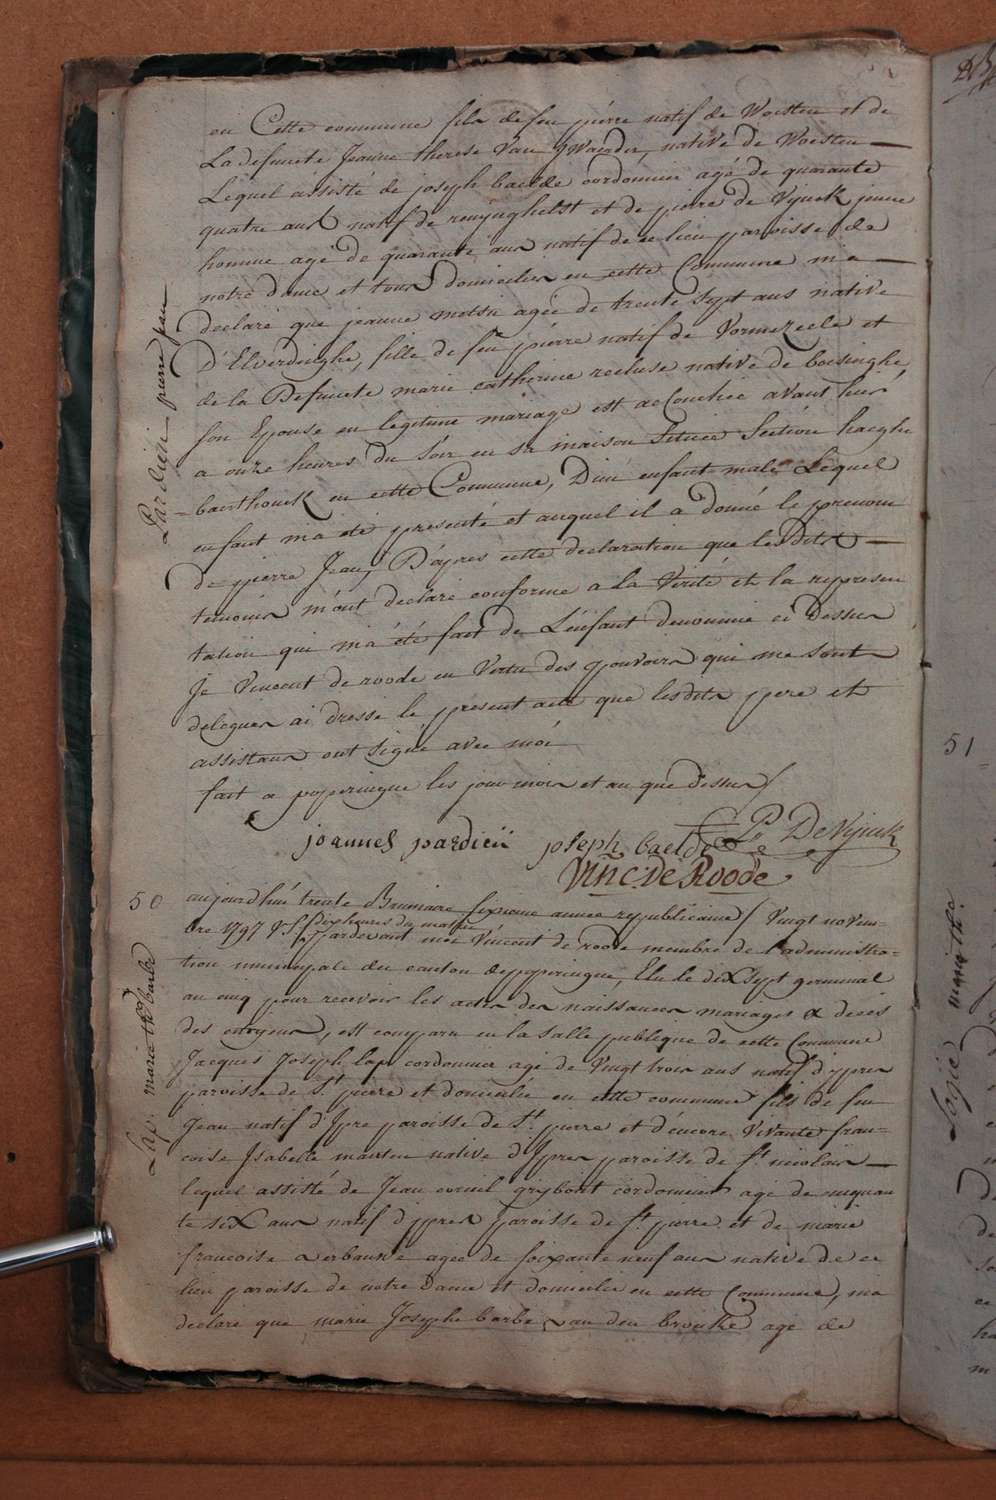 en Cette commune fils de feu piérre natif de Woesten et de
La defuncte Jeanne therese Van native de Woesten
Lequel assisté de joseph baelde cordonnier agé de quarante
quatre ans natif de renynghelst et de pierre de Vynck jeune
homme agé de quarante ans natif de ce lieu paroisse de
notre dame et tous domiciliés en cette Commune m'a
declaré que jeanne agée de trente sept ans native
D'Elverdinghe, fille de feu pierre natif de Vormezeele et
de la Defuncte marie catherine recluse native de boesinghe,
son Epouse en legitime mariage est accouchée avant hier
a onze heures du soir en sa maison Située Séction haeghe
=baerthouck en cette Commune, D'un enfant male Lequel
enfant m'a été presenté et auquel il a donné le prenom
de pierre Jean, D'apres cette declaration que les Dits
temoins m'ont declaré conforme a la Verité et la represen
tation qui m'a été fait de L'enfant denommé ci Dessus
Je Vincent de roode en Vertu des pouvoirs qui me sont
delegués ai dressé le present acte que lesdits pere et
assistans ont signé avec moi
fait a poperingue les jour mois et an que dessus /
Pardieu pierre jean
joannes pardieü joseph baelde P De Vynck
Vinc: De Roode
50 aujourd'hui trente Brumaire sixieme année republicaine / Vingt novem-
bre 1797 V.S. / dix heures du matin pardevant moi Vincent de roode membre de l'administra-
tion municipale du canton de poperingue, Elu le dix Sept germinal
an cinq pour recevoir les actes des naissances mariages & décés
des citoyens, est comparu en la salle publique de cette Commune
Jacques Joseph lap cordonnier agé de Vingt trois ans natif d'ypres
paroisse de St. pierre et domicilié en cette commune fils de feu
Jean natif d'Ipre paroisse de St. pierre et d'encore Vivante fran-
coise Isabelle native d'Ipres paroisse de St nicolais
lequel assisté de Jean cordonnier agé de cinquan
te six ans natif d'ypres paroisse de St. pierre et de marie
francoise agée de soixante neuf ans native de ce
lieu paroisse de notre Dame et domiciliés en cette Commune, m'a
declaré que marie Josephe barbe van den broucke agé de
Lap. marie the barbe
51
Logie marie the.